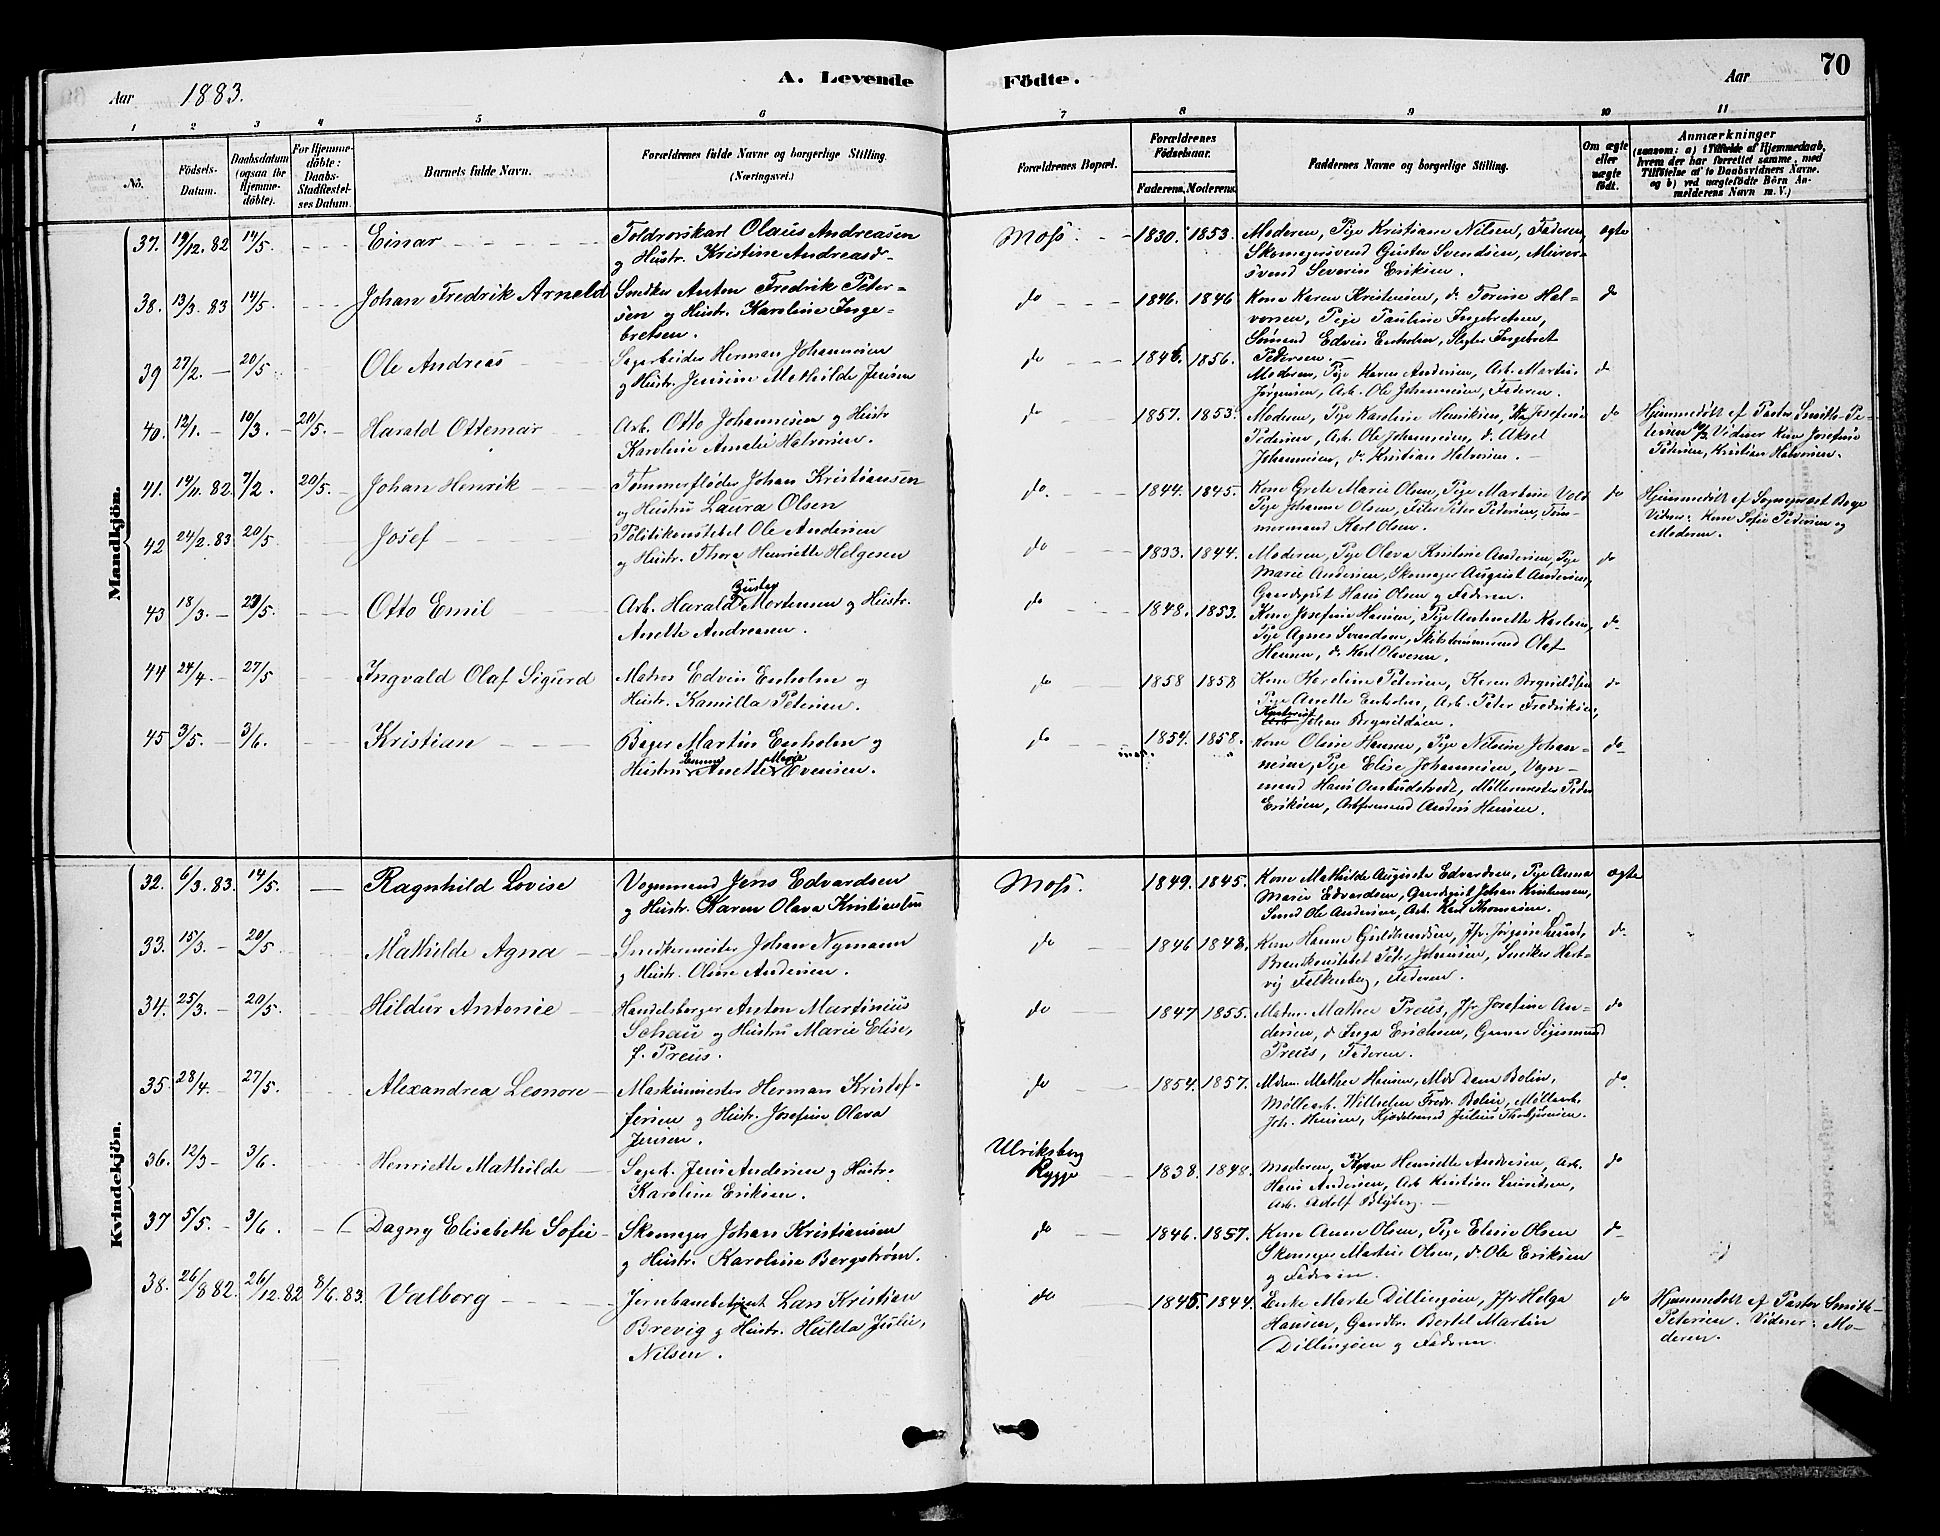 Aar 1883. A. Levende Födte. Aar 70
1 2 3 4 5 6 7 8 9 10 11
No.
Födsels-Datum.
Daabsdatum (ogsaa for Hjemmedöbte).
For Hjemmedöbte: Daabs-Stadfæstelses Datum.
Barnets fulde Navn.
Forældrenes fulde Navne og borgerlige Stilling. (Næringsvei.)
Forældrenes Bopæl.
Forældrenes Födselsaar.
Faderens. Moderens.
Faddernes Navne og borgerlige Stilling.
Om ægte eller uægte födt.
Anmærkninger
(saasom: a) i Tilfælde af Hjemmedaab,
hvem der har forrettet samme, med
Tilföielse af to Daabsvidners Navne.
og b) ved uægtefödte Börn An-
melderens Navn m. V.)
Mandkjön.
37. 19/12 82 14/5. Einar
Toldrorskarl Olaus Andreasen
og Hustr. Kristine Andreasd-
Moss. 1830. 1853.
Moderen, Pige Kristiane Nilsen, Faderen,
Skomagersvend Gustav Svendsen, Murer-
svend Severin Eriksen.
ægte
38. 13/3 83 14/5. Johan Fredrik Arnold
Snedker Anton Fredrik Peter-
sen og Hustr. Karoline Inge-
bretsen.
do 1846. 1846
Kone Karen Kristensen, do Torine Hal-
vorsen, Pige Pauline Ingebretsen,
Sömand Edvin Enholm, Slagter Ingebret
Pedersen.
do
39 27/2. 20/5 Ole Andreas
Sagarbeider Herman Johannesen
og Hustr. Jensine Mathilde Jensen
do 1846. 1856.
Moderen, Pige Karen Andersen, Arb. Martin
Jörgensen, Arb. Ole Johannesen, Faderen.
do
40. 12/1. 10/3. 20/5. Harald Ottemar
Arb. Otto Johannesen og Hustr
Karoline Amalie Halvorsen.
do 1857. 1853.
Moderen, Pige Karoline Henriksen, Kone Josefine
Pedersen, Arb. Ole Johannesen, do Aksel
Johannesen, do Kristian Halvorsen.
do
Hjemmedöbt af Pastor Smith-Pe-
tersen 10/3. Vidner Kone Josefine
Pedersen, Kristian Halvorsen.
41. 14/11. 82. 7/2. 20/5. Johan Henrik
Tömmerflöder Johan Kristiansen
og Hustru Laura Olsen
do. 1844. 1845.
Kone Grete Marie Olsen, Pige Martine Vold
Pige Johanne Olsen, Flöter Peter Pedersen, Töm-
mermand Karl Olsen.
do
Hjemmedöbt af Sogneprest Bage
Vidner: Kone Sofie Pedersen og
Moderen.
42 24/2. 83. 20/5. Josef
Politikonstabel Ole Andersen
og Hustr. Thora Henriette Helgesen
do 1833. 1844.
Moderen, Pige Olava Kristine Andersen, Pige
Marie Andersen, Skomager August Andersen,
Gaardsgut Hans Olsen og Faderen.
do
43 18/3. 20/5. Otto Emil
Gustav
Arb. Harald Mortensen og Hustr.
Anette Andreasen.
do 1848. 1853.
Kone Josefine Hansen, Pige Antonette Karlsen,
Pige Agnes Svendsen, Skibstömmermand Olaf
Hansen, do Karl Olavesen.
do
44 24/4. 27/5 Ingvald Olaf Sigurd
Matros Edvin Enholm og
Hustr. Kamilla Petersen.
do 1858 1858
Kone Karoline Petersen, Karen Brynildsen
Pige Anette Enholm, Arb. Peter Fredriksen,
Johan Brynildsen.
do
45 3/5. 3/6. Kristian
Bager Martin Enholm og
Hustru Emma Anette Marie Evensen.
do 1854. 1858.
Kone Oline Hansen, Pige Nilsine Johan-
nesen, Pige Elise Johannesen, Vogn-
mand Hans Ombudstvedt, Möllemester Peder
Eriksen, Anders Hansen.
do
Kvindekjön.
32. 6/3. 83. 14/5. Ragnhild Lovise
Vognmand Jens Edvardsen
og Hustr. Karen Olava Kristiansen
Moss. 1849. 1845.
Kone Mathilde Augusta Edvardsen, Pige Anna
Marie Edvardsen, Gaardsgut Johan Kristensen,
Smed Ole Andersen, Arb. Karl Thomasen.
ægte
33. 15/3. 20/5 Mathilde Agna
Snedkermester Johan Nymann
og Hustr. Oline Andersen.
do 1846 1848.
Kone Hanne Guldbrandsen, Jfr. Jörgine Lund,
Brandkonstabel Peter Johansen, Snedker Hart-
vig Falkenberg, Faderen.
do
34. 25/3. 20/5. Hildur Antonie
Handelsborger Anton Martinius
Schau og Hustru Marie Elise,
f. Preus.
do 1847 1855.
Mathea Preus, Jfr Josefine An-
dersen, do Inga Erichsen, Garver Sigismund
Preus, Faderen.
do
35. 28/4. 27/5. Alexandrea Leonore
Maskinmester Herman Kristof-
fersen og Hustr. Josefine Olava
Jensen.
do 1854. 1857.
Mdm. Mathea Hansen, Mdm Dina Bolin,
Möllearb. Wilhelm Fredr. Bolin, Möllearb.
Joh. Hansen, Kjedelsmed Julius Thorbjörnsen.
do
36. 12/3 3/6. Henriette Mathilde
Sagarb. Jens Andersen og Hustr.
Karoline Eriksen.
Ulriksberg
Rygge 1838. 1848.
Moderen, Kone Henriette Andersen, Arb.
Hans Andersen, Arb Kristian Lauritsen,
Arb. Adolf Blyberg.
do
37 5/5. 3/6. Dagny Elisabeth Sofie
Skomager Johan Kristiansen
og Hustr. Karoline Bergström.
do 1846. 1857.
Kone Anne Olsen, Pige Eline Olsen
Skomager Martin Olsen, do Ole Eriksen
og Faderen.
do
38. 26/8 82. 26/12. 82 8/6. 83. Valborg
Jernbanebetjent Lars Kristian
Brevig og Hustr. Hulda Julie,
Nilsen.
do 1845. 1844.
Enke Marte Dillingöen, Jfr Helga
Hansen, Gaardbr. Bertel Martin
Dillingöen og Faderen.
do
Hjemmedöbt af Pastor Smith-
Petersen. Vidner: Mo-
deren.